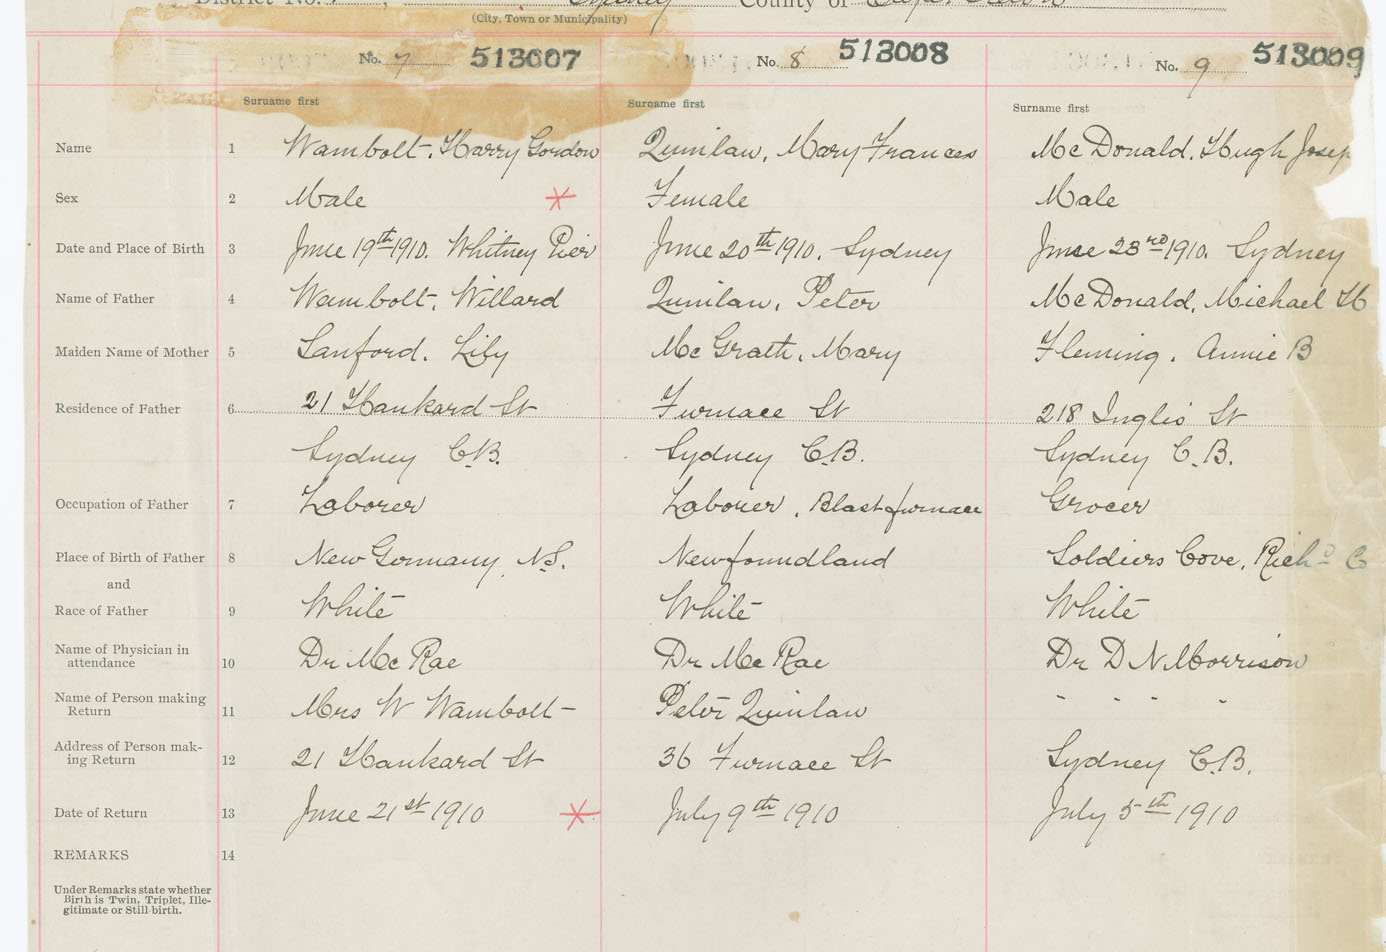 District No. , Sydney County of Cape Breton
(City, Town or Municipality)
No. 7 513007 No. 8 513008 No. 9 513009
Surname first Surname first Surname first
Name 1 Wambolt, Harry Gordon Quinlan, Mary Frances McDonald, Hugh Josep
Sex 2 Male Female Male
Date and Place of Birth 3 June 19th 1910. Whitney Pier June 20th 1910. Sydney June 23rd 1910. Sydney
Name of Father 4 Wambolt, Willard Quinlan, Peter McDonald, Michael H
Maiden Name of Mother 5 Sanford. Lily McGrath, Mary Fleming, Annie B
Residence of Father 6 21 Hankard St Furnace St 218 Inglis St
Sydney C.B. Sydney C.B. Sydney C.B.
Occupation of Father 7 Laborer Laborer, Blast furnace Grocer
Place of Birth of Father 8 New Germany, N.S. Newfoundland Soldiers Cove, Richd Co
and
Race of Father 9 White White White
Name of Physician in
attendance 10 Dr McRae Dr McRae Dr D N Morrison
Name of Person making
Return 11 Mrs W Wambolt Peter Quinlan " " " "
Address of Person mak-
ing Return 12 21 Hankard St 36 Furnace St Sydney C.B.
Date of Return 13 June 21st 1910 July 9th 1910 July 5th 1910
REMARKS 14
Under Remarks state whether
Birth is Twin, Triplet, Ille-
gitimate or Still-birth.